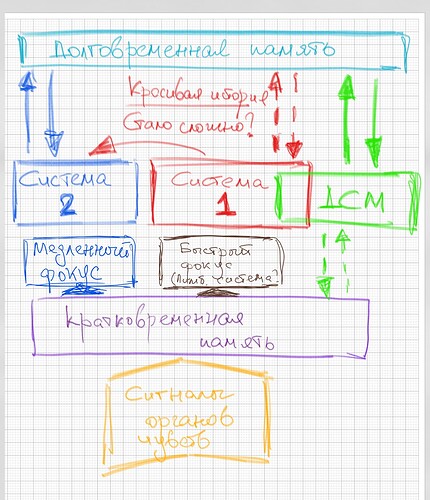 Долговременная память
Красивая история
Стало сложно?
Система
2
Система
1
ДСМ
Медленный
фокус
Быстрый
фокус
(Лимб. система?
Кратковременная
память
Сигналы
органов
чувств